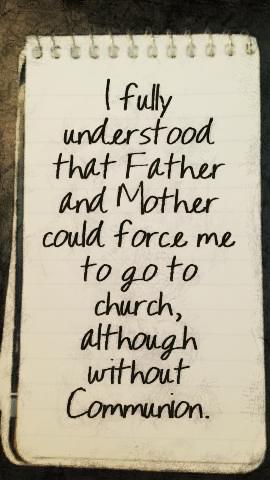 I fully
understood
that Father
and Mother
could force me
to go to
church,
although
without
Communion.